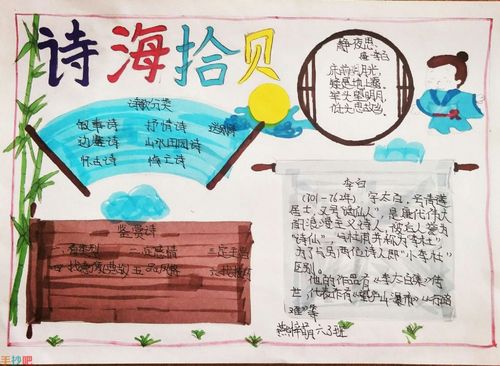 诗海拾贝
静夜思
唐·李白
床前明月光,
疑是地上霜。
举头望明月,
低头思故乡。
诗歌分类
叙事诗 抒情诗 送别诗
边塞诗 山水田园诗
怀古诗 悼亡诗
鉴赏诗
李白
(701-762年) 字太白,号青莲
居士,又号“谪仙人”,是唐代伟大
的浪漫主义诗人,被后人誉为
“诗仙”,与杜甫并称为“李杜”
为了与另两位诗人即“小李杜”
区别。
他的作品有《李太白集》传
世,代表作有《望庐山瀑布》《行路
难》等
六3班
手抄吧